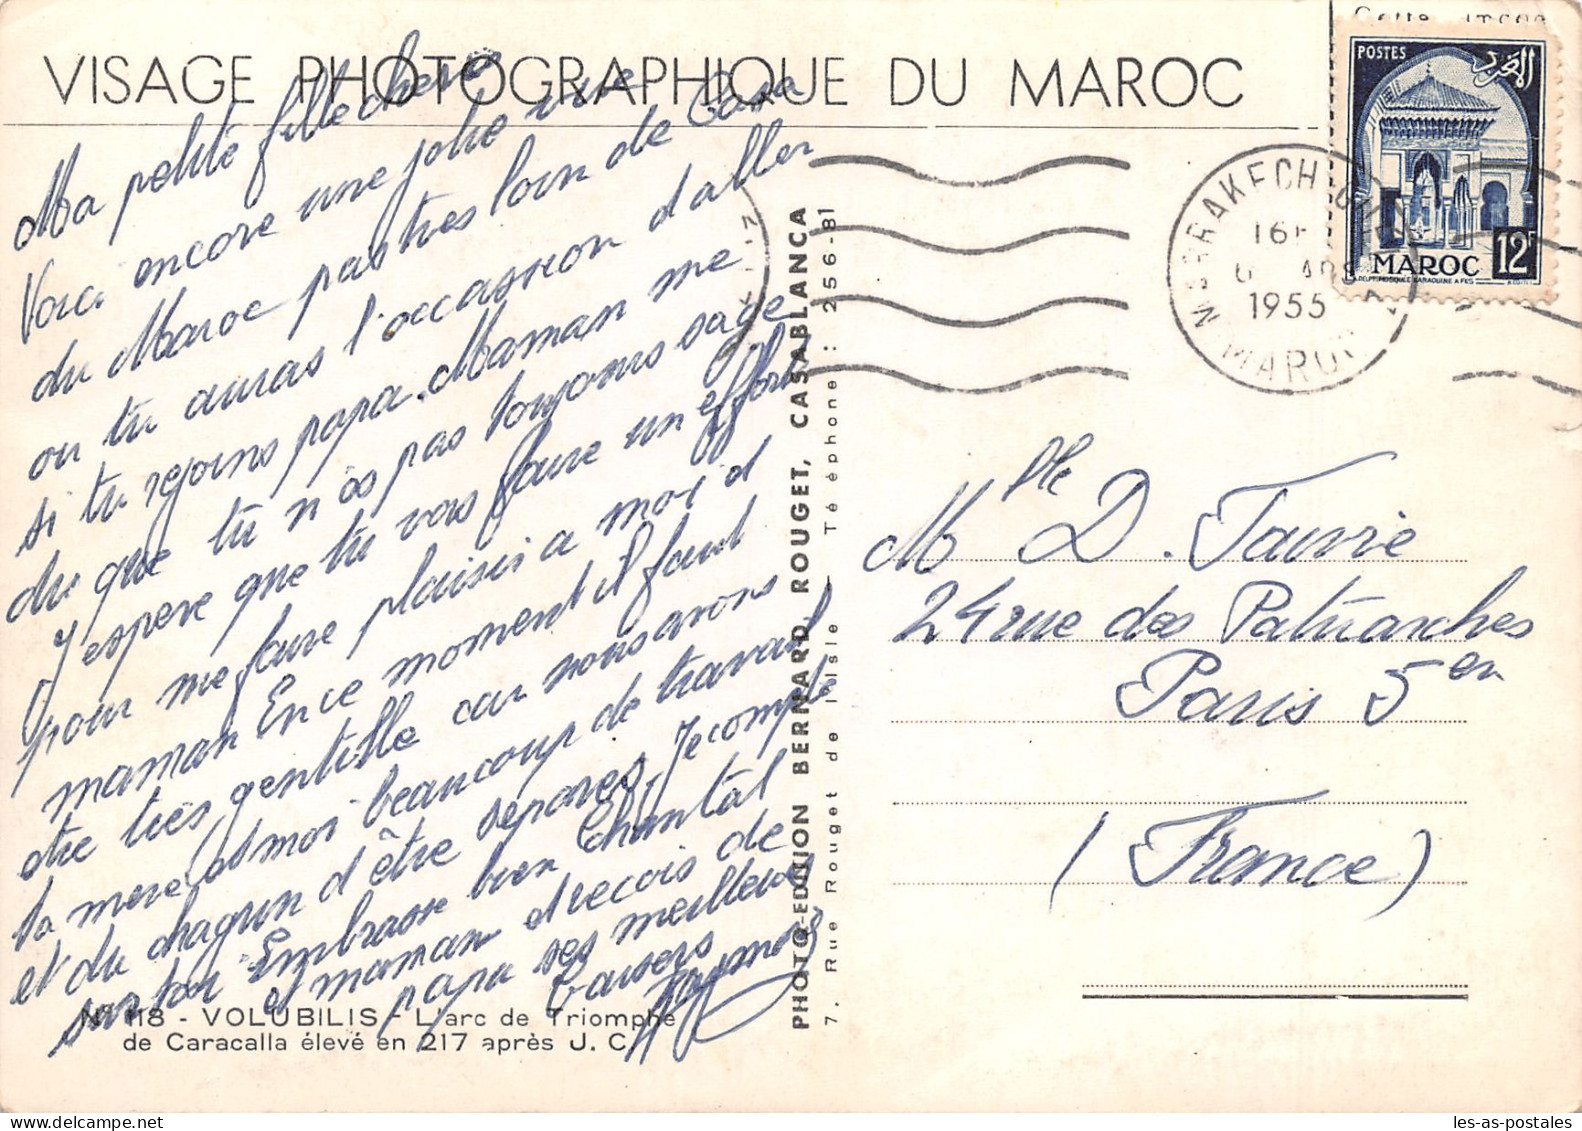 VISAGE PHOTOGRAPHIQUE DU MAROC
Ma petite fille cherie
Voici encore une jolie vue
du Maroc pas tres loin de Casa
ou tu auras l'occassion d'aller
si tu rejoins papa. Maman me
du que tu n'as pas toujours sage
J'espere que tu vas faire un effort
pour me faire plaisir a moi et
maman En ce moment il faut
être très gentille car nous avons
ta mere et moi beaucoup de travail
et du chagrin d'être separes. Je compte
sur toi Embrasse bien Chantal
et maman et recois de
papa ses meilleurs
baisers
N° 118 - VOLUBILIS - L'arc de Triomphe
de Caracalla élevé en 217 après J. C.
PHOTO-EDITION BERNARD ROUGET, CASABLANCA
7, Rue Rouget de l'Isle — Téléphone : 256-81
POSTES
المغرب
MAROC 12F
MARRAKECH
16H
1955
MAROC
Mlle D. Fauvie
24 rue des Patriarches
Paris 5en
(France)
les-as-postales